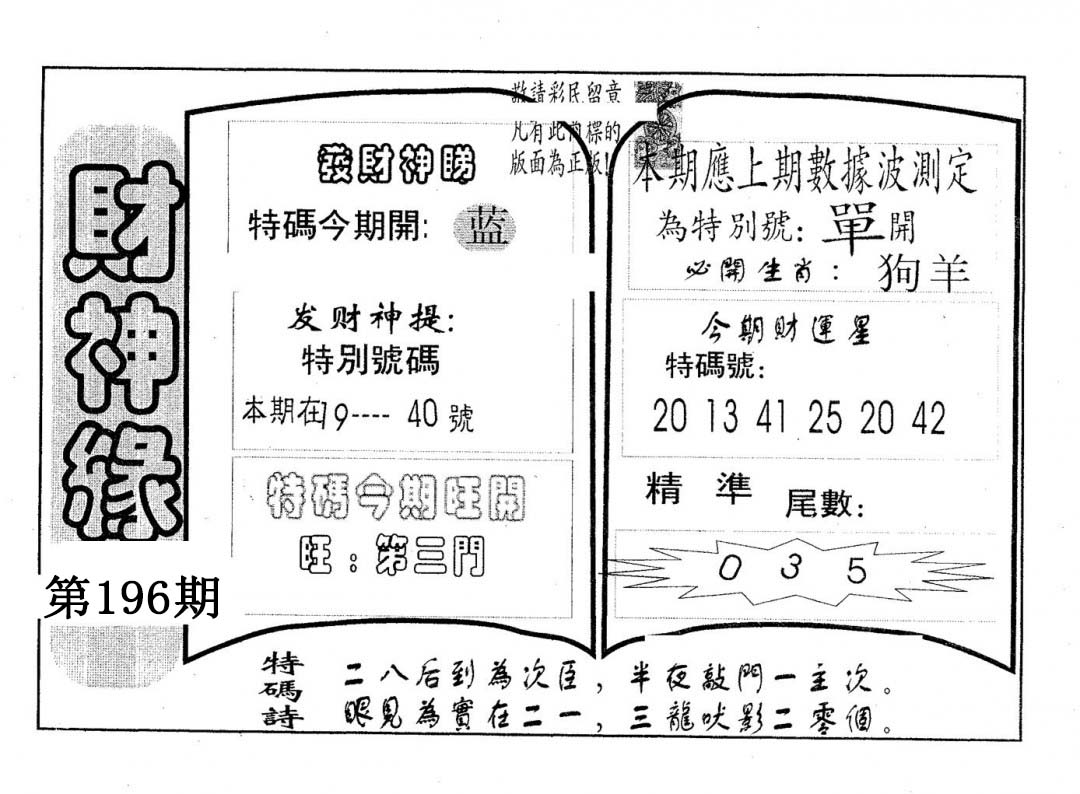 敬請彩民留意
凡有此內標的
版面為正版!
財神緣
第196期
發財神睇
特碼今期開: 蓝
发财神提:
特別號碼
本期在19---- 40號
特碼今期旺開
旺：第三門
本期應上期數據波測定
為特別號: 單開
必開生肖： 狗羊
今期財運星
特碼號:
20 13 41 25 20 42
精 準 尾數:
0 3 5
特碼詩
二八后到為次臣，半夜敲門一主次。
眼見為實在二一，三龍吠影二零個。